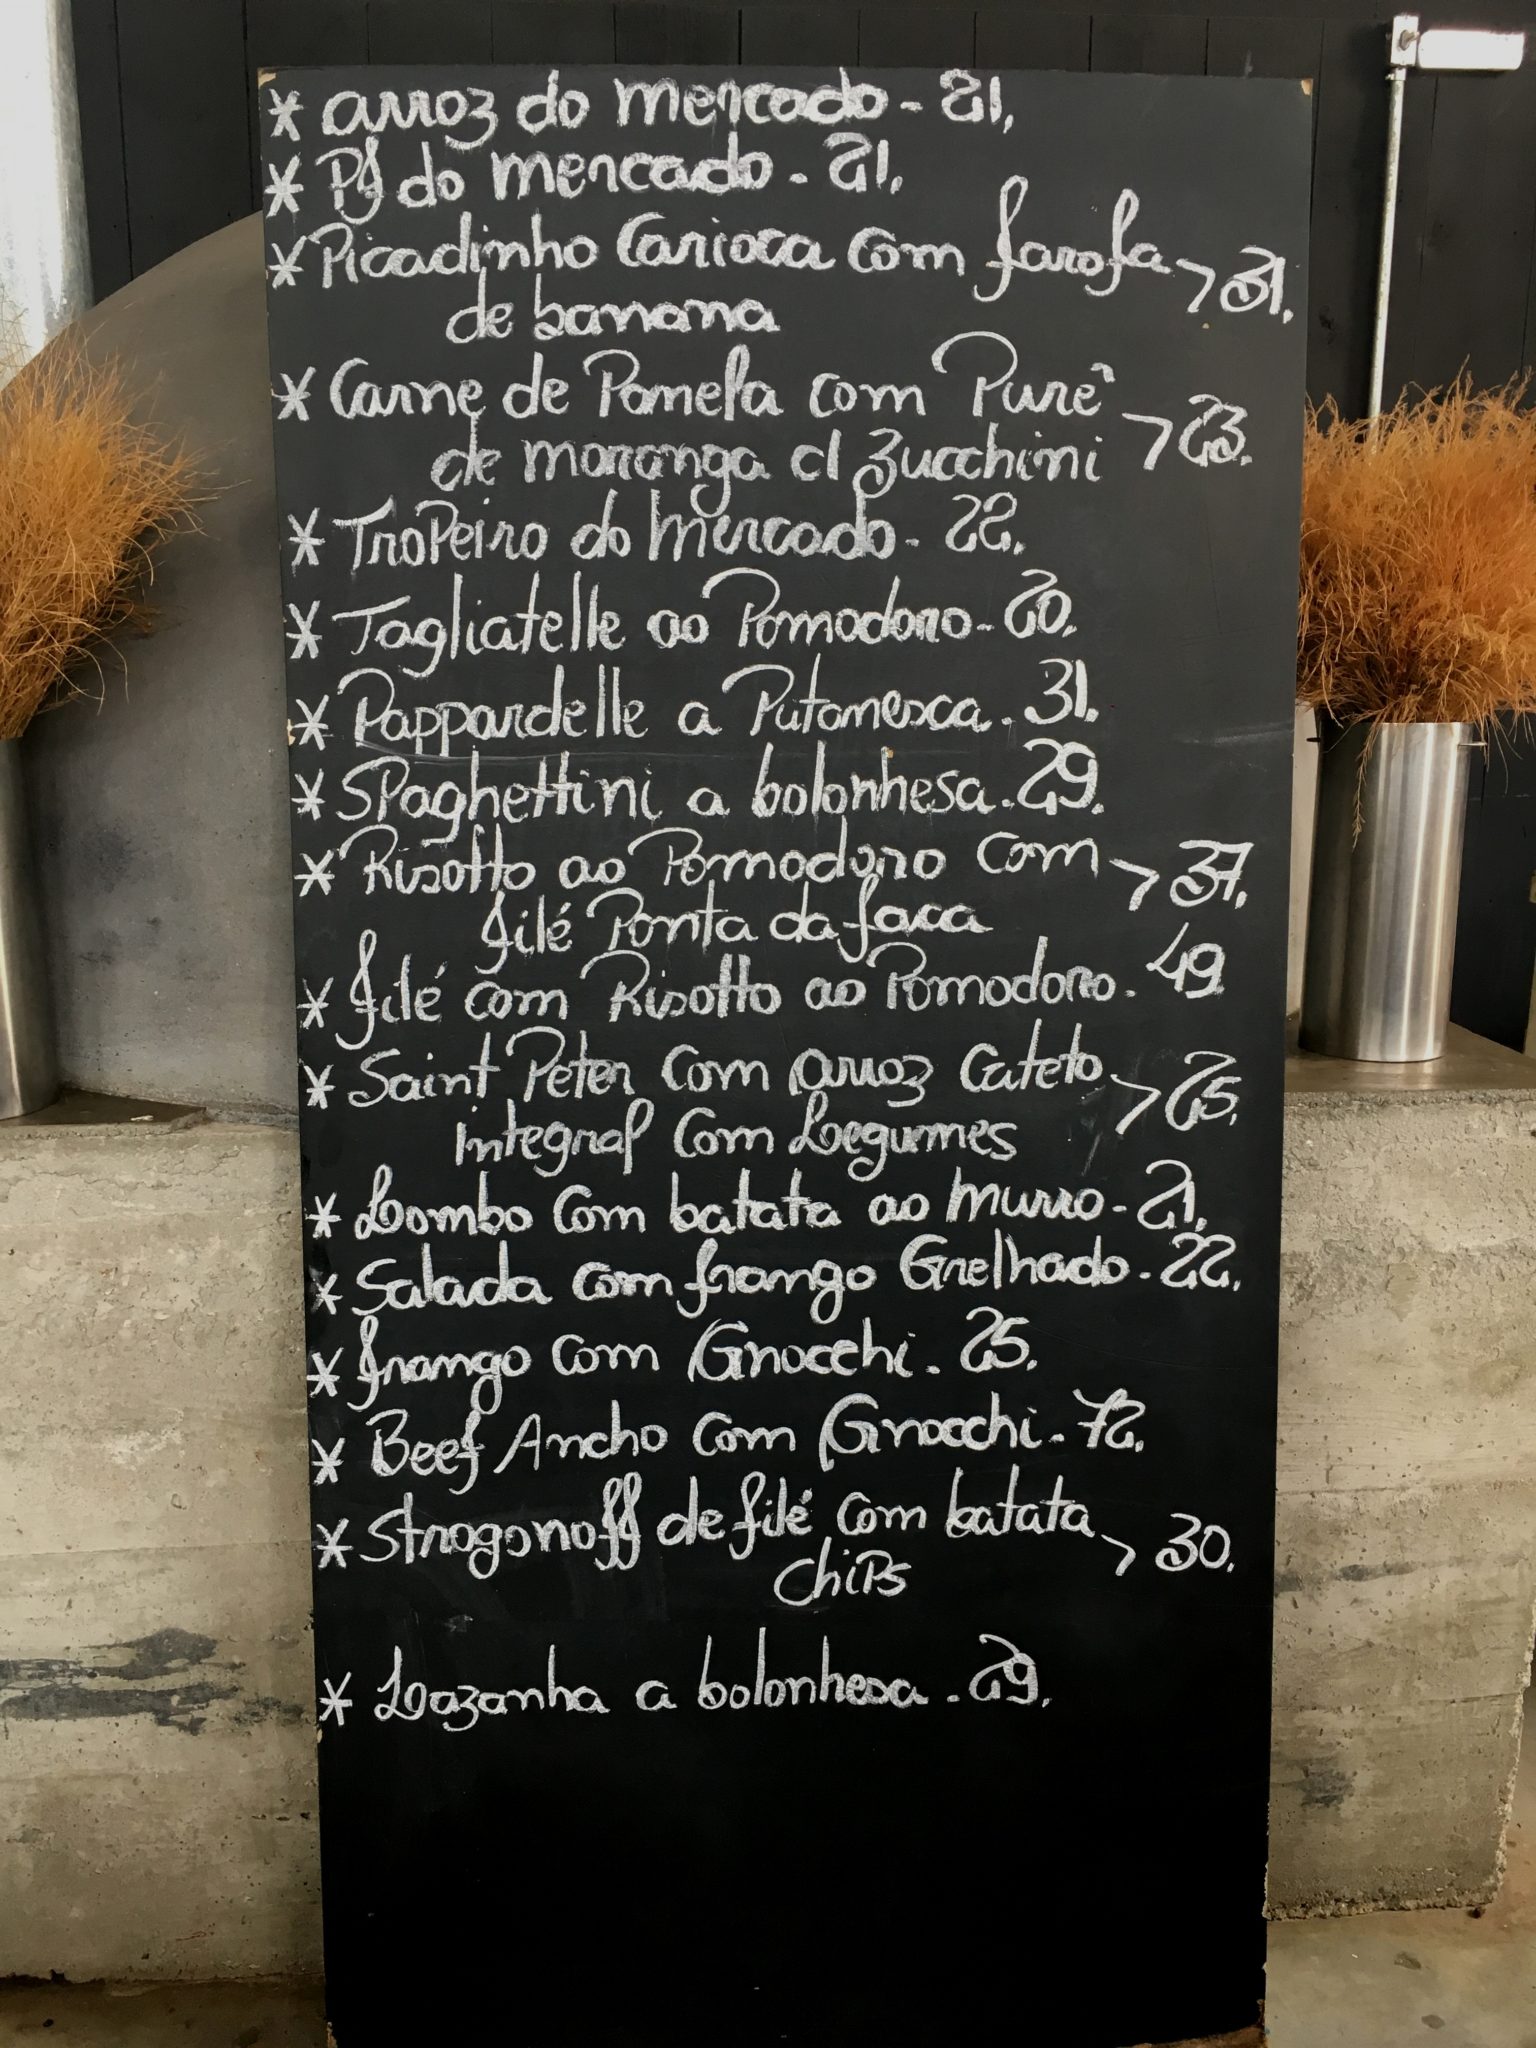 * arroz do mercado - 21,
* Pf do mercado - 21,
* Picadinho Carioca com farofa > 31,
de banana
* Carne de Panela com Purê > 23,
de moranga c/ Zucchini
* Tropeiro do Mercado - 22,
* Tagliatelle ao Pomodoro - 20,
* Pappardelle a Putanesca. 31,
* SPaghettini a bolonhesa. 29,
* Risotto ao Pomodoro com > 37,
filé Ponta da faca
* filé com Risotto ao Pomodoro. 49
* Saint Peter com arroz Cateto > 25,
integral com Legumes
* Lombo com batata ao Murro - 21,
* Salada com frango Grelhado - 22,
* frango com Gnocchi. 25,
* Beef Ancho com Gnocchi - 72,
* Strogonoff de filé com batata > 30,
ChiPs
* Lazanha a bolonhesa. 29,